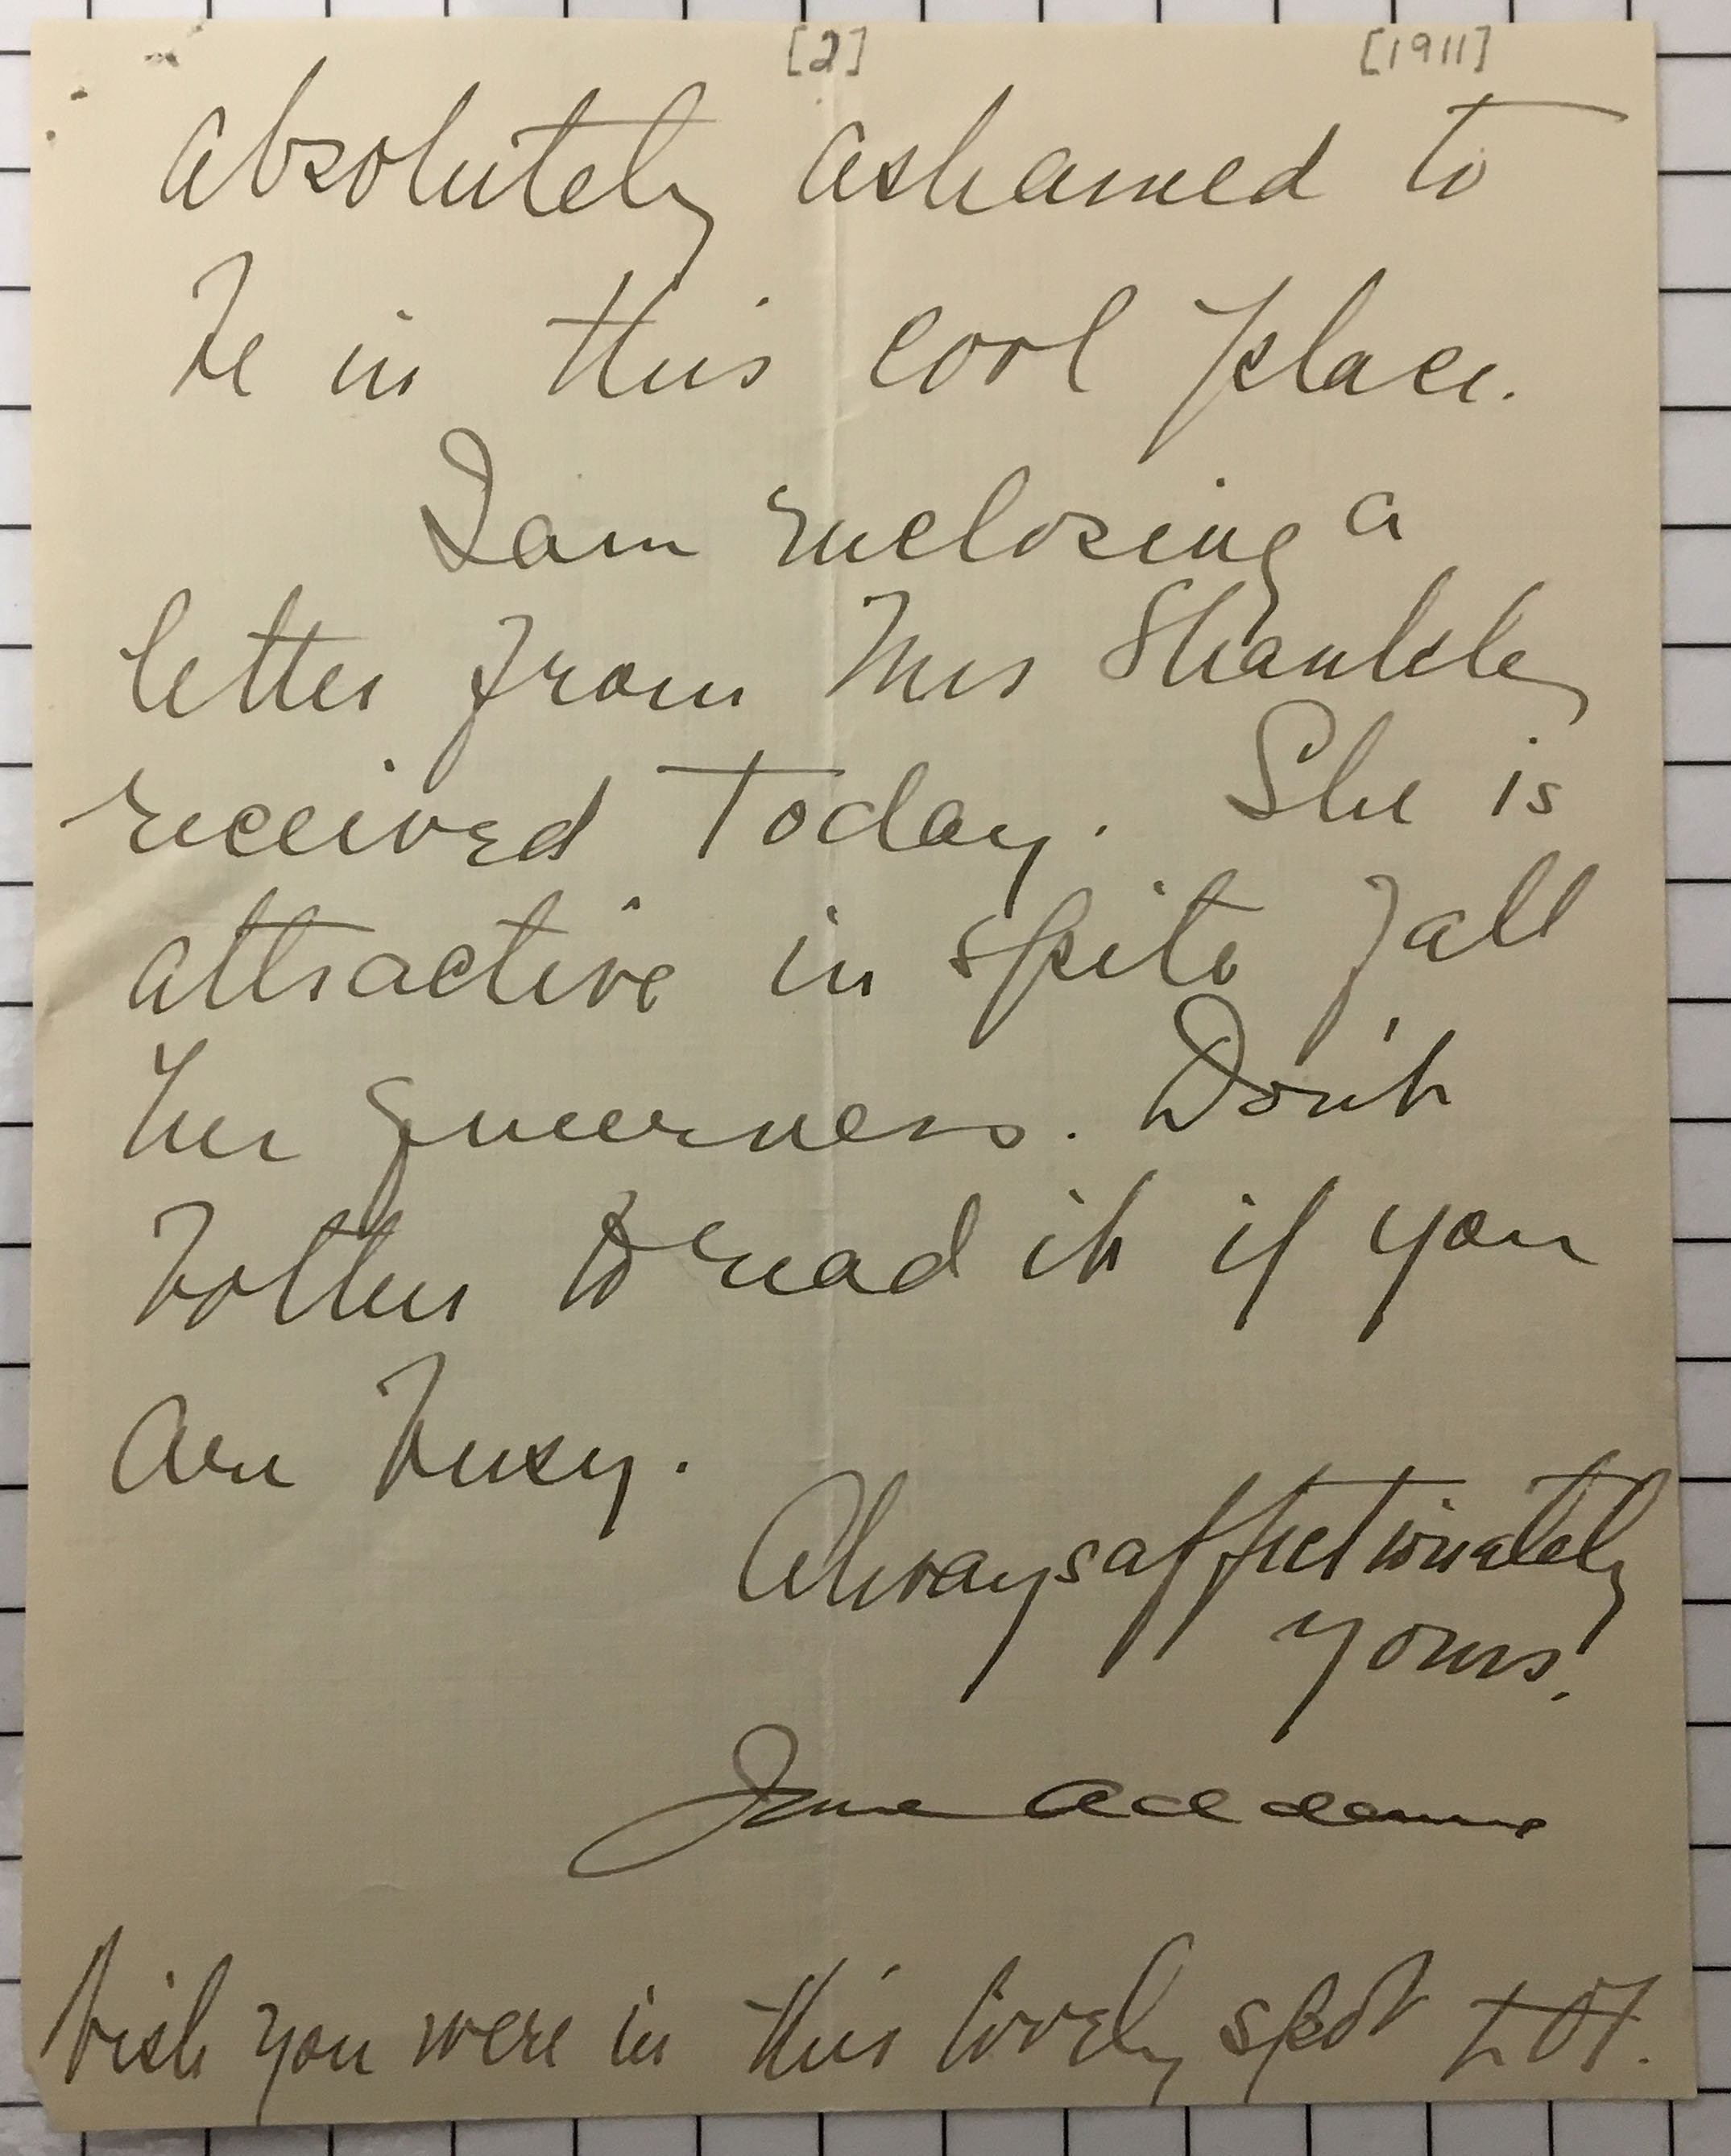 [2] [1911]
absolutely ashamed to
be in this cool place.
I am enclosing a
letter from Mrs Shankley
received today. She is
attractive in spite of all
her queerness. Don't
bother to read it if you
are busy.
Always affectionately
yours.
Jane Addams
Wish you were in this lovely spot